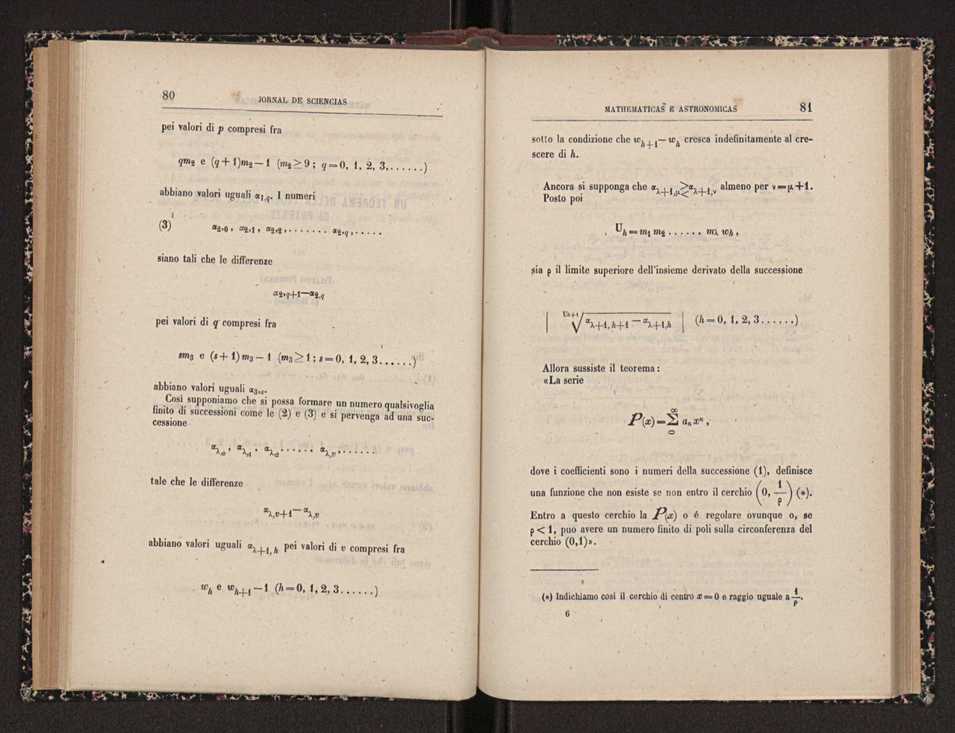 80
JORNAL DE SCIENCIAS
pei valori di p compresi fra
qm₂ e (q+1)m₂−1 (m₂≥9; q=0, 1, 2, 3,......)
abbiano valori uguali α₁,q. I numeri
(3) α₂,₀, α₂,₁, α₂,₂,....... α₂,q,.....
siano tali che le differenze
α₂,q+1−α₂,q
pei valori di q compresi fra
sm₃ e (s+1)m₃−1 (m₃≥1; s=0, 1, 2, 3......)
abbiano valori uguali α₃,s.
Cosi supponiamo che si possa formare un numero qualsivoglia
finito di successioni come le (2) e (3) e si pervenga ad una suc-
cessione
α_λ,0, α_λ,1, α_λ,2...... α_λ,v,......
tale che le differenze
α_λ,v+1−α_λ,v
abbiano valori uguali α_λ+1,h pei valori di v compresi fra
w_h e w_h+1−1 (h=0, 1, 2, 3......)
MATHEMATICAS E ASTRONOMICAS
81
sotto la condizione che w_h+1−w_h cresca indefinitamente al cre-
scere di h.
Ancora si supponga che α_λ+1,μ≷α_λ+1,ν almeno per ν=μ+1.
Posto poi
U_h=m₁ m₂ ...... m_λ w_h,
sia ρ il limite superiore dell'insieme derivato della successione
| ᵁʰ⁺¹√(α_λ+1,h+1−α_λ+1,h) | (h=0, 1, 2, 3......)
Allora sussiste il teorema:
«La serie
P(x)=∑₀^∞ aₙxⁿ,
dove i coefficienti sono i numeri della successione (1), definisce
una funzione che non esiste se non entro il cerchio (0, 1/ρ) (*).
Entro a questo cerchio la P(x) o é regolare ovunque o, se
ρ<1, puo avere un numero finito di poli sulla circonferenza del
cerchio (0,1)».
(*) Indichiamo cosi il cerchio di centro x=0 e raggio uguale a 1/ρ.
6